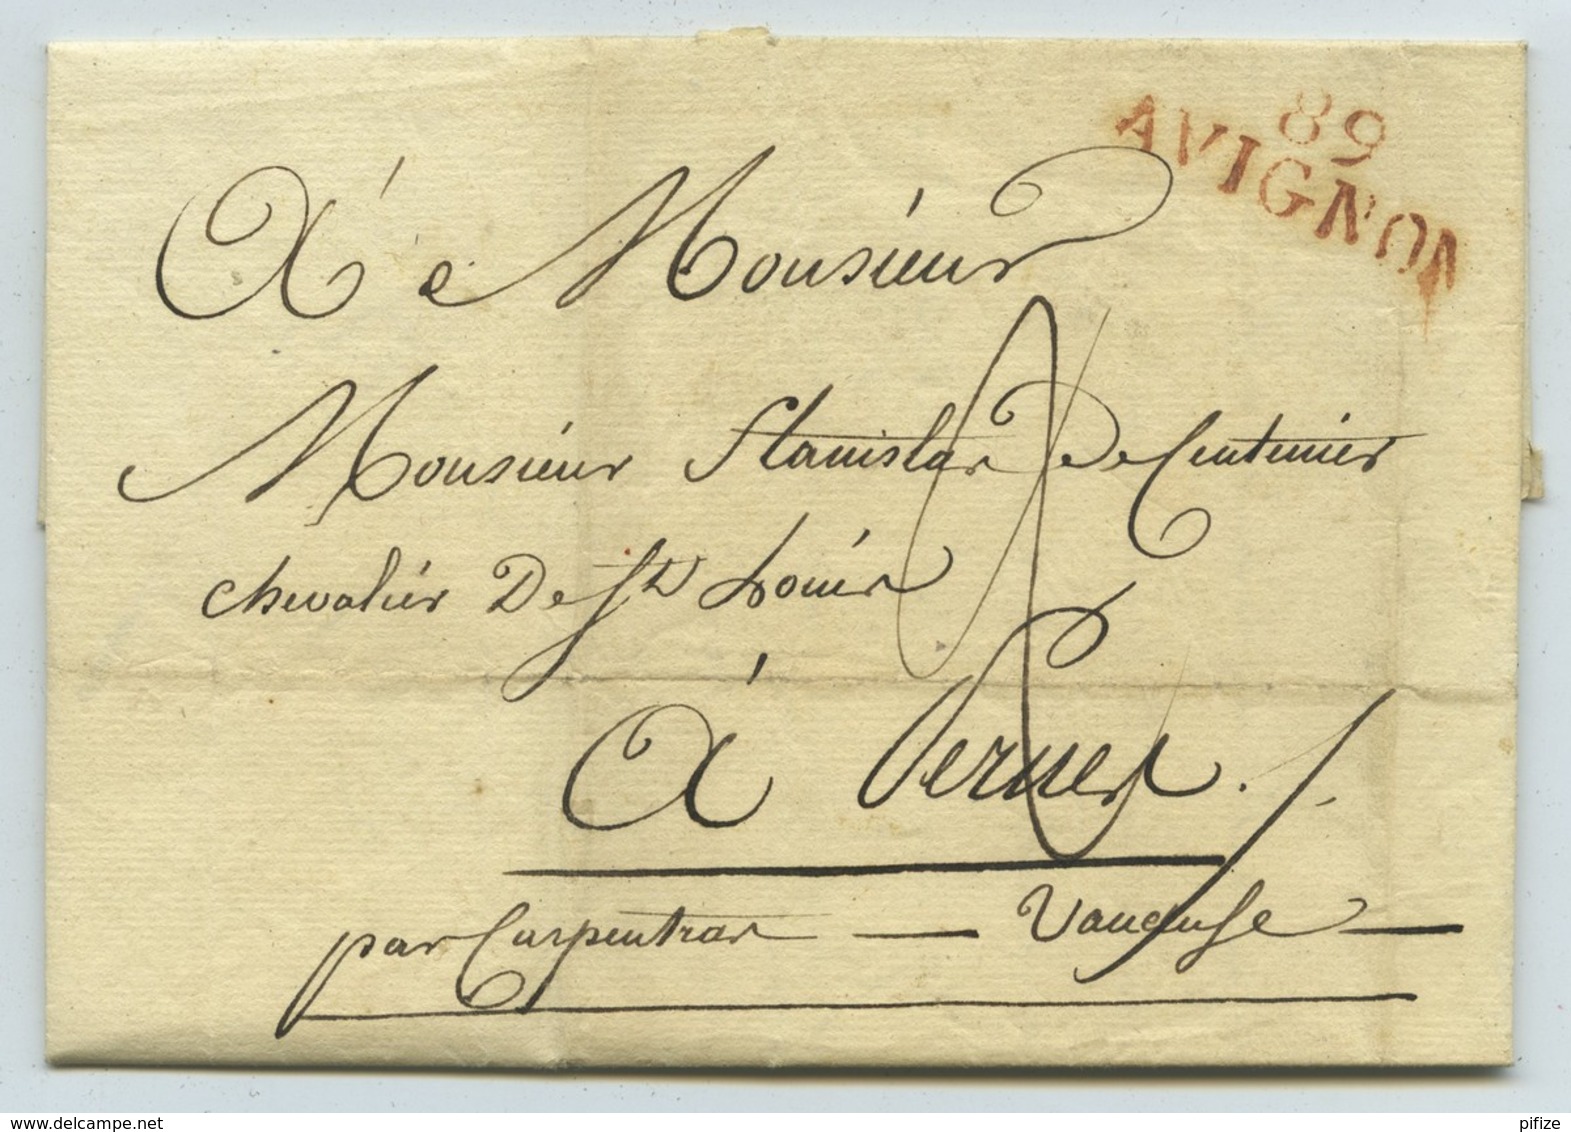 89
AVIGNON
A Monsieur
Monsieur Stanislas De Centenier
chevalier De St Louis
A Pernes
par Carpentras — Vaucluse —
www.delcampe.net
pifize